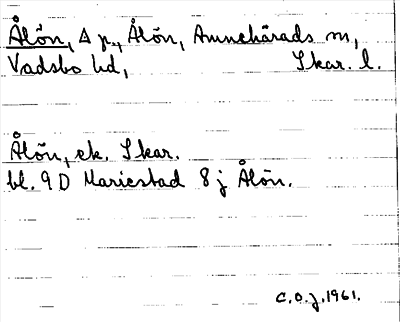 Ålön, Δ p., Ålön, Amnehärads sn,
Vadsbo hd, Skar. l.
Ålön, ek. Skar.
bl. 9 D Mariestad 8 j Ålön.
C.O.J. 1961.